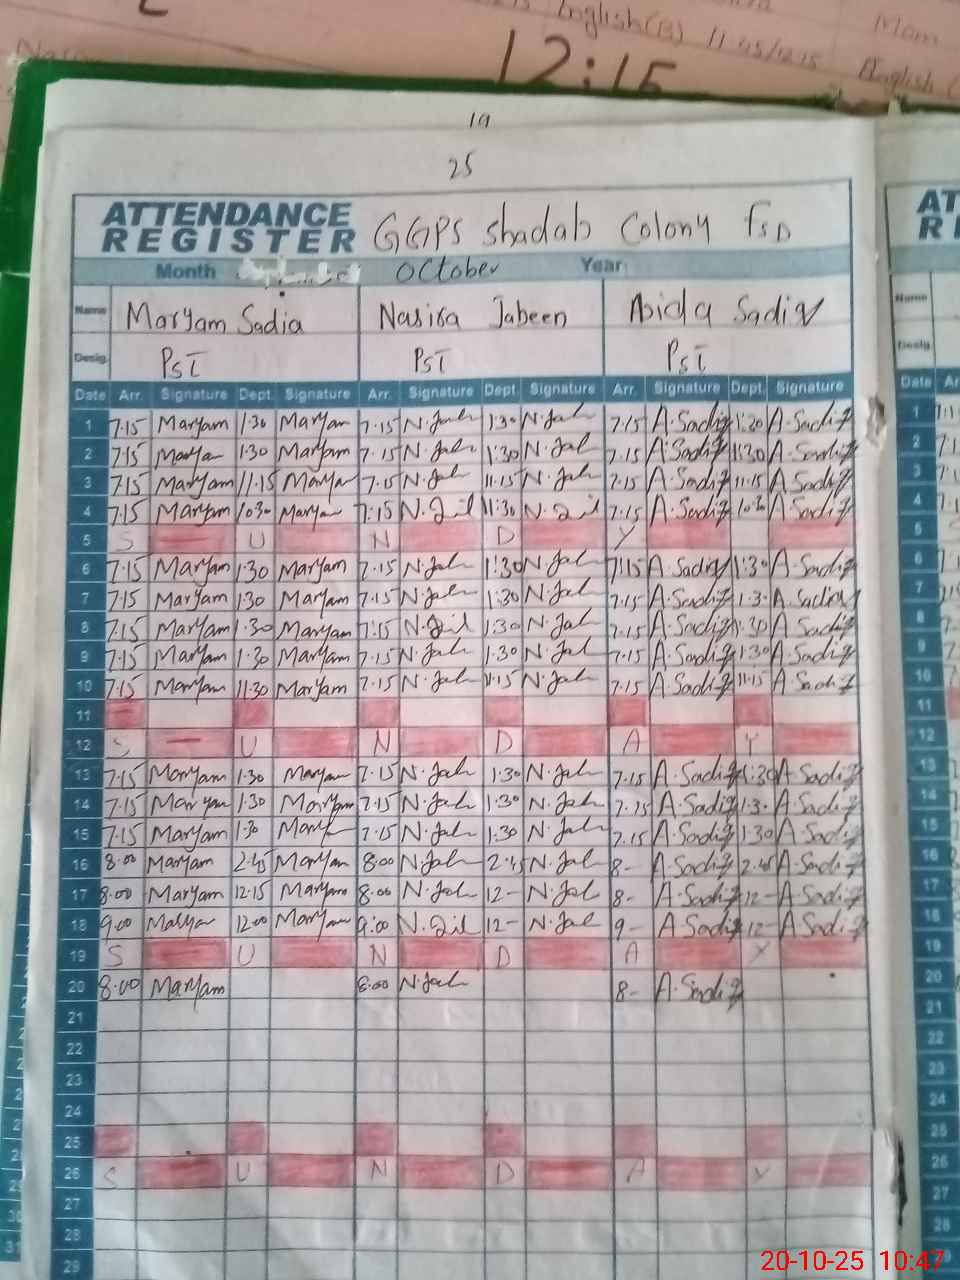 English(B) 11:45/12:15 English
Mam
12:15
19
25
ATTENDANCE REGISTER GGPS Shadab Colony FSD
Month October Year
Name Maryam Sadia Nasira Jabeen Abida Sadiq
Desig. PST PST PST
Date Arr. Signature Dept. Signature Arr. Signature Dept. Signature Arr. Signature Dept. Signature
1 7.15 Maryam 1.30 Maryam 7.15 N.Jab 1:30 N.Jab 7.15 A.Sadiq 1:30 A.Sadiq
2 7.15 Maryam 1.30 Maryam 7.15 N.Jab 1:30 N.Jab 7.15 A.Sadiq 1:30 A.Sadiq
3 7.15 Maryam 11.15 Maryam 7.15 N.Jab 11.15 N.Jab 7.15 A.Sadiq 11.15 A.Sadiq
4 7.15 Maryam 10.30 Maryam 7:15 11:30 7.15 A.Sadiq A.Sadiq
5 S U N D Y
6 7.15 Maryam 1.30 Maryam 7.15 N.Jab 1:30 N.Jab 7:15 A.Sadiq 1:30 A.Sadiq
7 7.15 Maryam 1.30 Maryam 7.15 N.Jab 1:30 N.Jab 7.15 A.Sadiq 1.3. A.Sadiq
8 7.15 Maryam 1.30 Maryam 7:15 1:30 N.Jab 7.15 A.Sadiq 1.30 A.Sadiq
9 7.15 Maryam 1.30 Maryam 7.15 N.Jab 1.30 N.Jab 7.15 A.Sadiq 1:30 A.Sadiq
10 7.15 Maryam 11.30 Maryam 7.15 N.Jab 11.15 N.Jab 7.15 A.Sadiq 11.15 A.Sadiq
11
12 S U N D A Y
13 7.15 Maryam 1.30 Maryam 7.15 N.Jab 1:30 N.Jab 7.15 A.Sadiq 1:30 A.Sadiq
14 7.15 Maryam 1.30 Maryam 7.15 N.Jab 1:30 N.Jab 7.15 A.Sadiq 1.3. A.Sadiq
15 7.15 Maryam 1.30 Maryam 7.15 N.Jab 1:30 N.Jab 7.15 A.Sadiq 1.30 A.Sadiq
16 8.00 Maryam 2.45 Maryam 8:00 N.Jab 2.45 N.Jab 8- A.Sadiq 2.45 A.Sadiq
17 8.00 Maryam 12.15 Maryam 8.00 N.Jab 12- N.Jab 8- A.Sadiq 12- A.Sadiq
18 9.00 Maryam 12.00 Maryam 9:00 12- N.Jab 9- A.Sadiq 12- A.Sadiq
19 S U N D A Y
20 8.00 Maryam 8.00 N.Jab 8- A.Sadiq
21
22
23
24
25
26 S U N D A Y
27
28
29
20-10-25 10:47